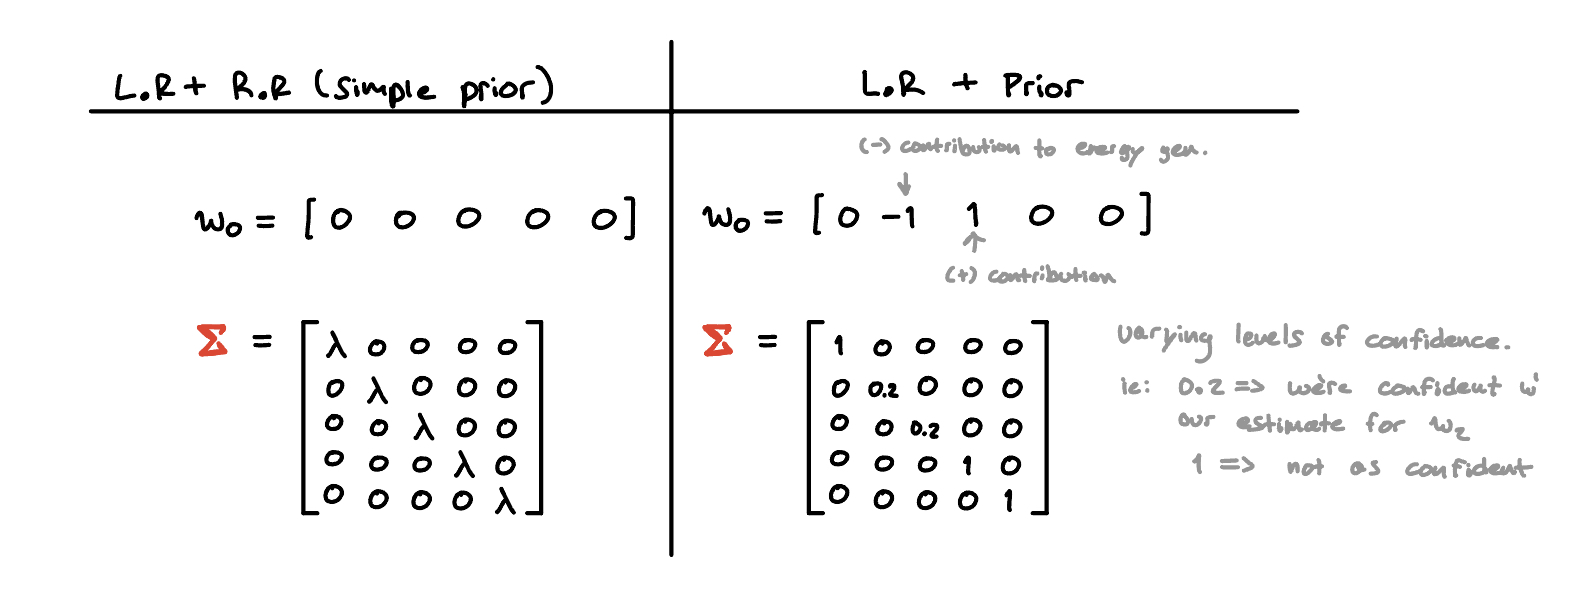 L.R + R.R (simple prior)
w₀ = [ 0 0 0 0 0 ]
Σ = [ λ 0 0 0 0
0 λ 0 0 0
0 0 λ 0 0
0 0 0 λ 0
0 0 0 0 λ ]
L.R + Prior
(-) contribution to energy gen.
↓
w₀ = [ 0 -1 1 0 0 ]
↑
(+) contribution
Σ = [ 1 0 0 0 0
0 0.2 0 0 0
0 0 0.2 0 0
0 0 0 1 0
0 0 0 0 1 ]
varying levels of confidence.
ie: 0.2 => we're confident w'
our estimate for w₂
1 => not as confident